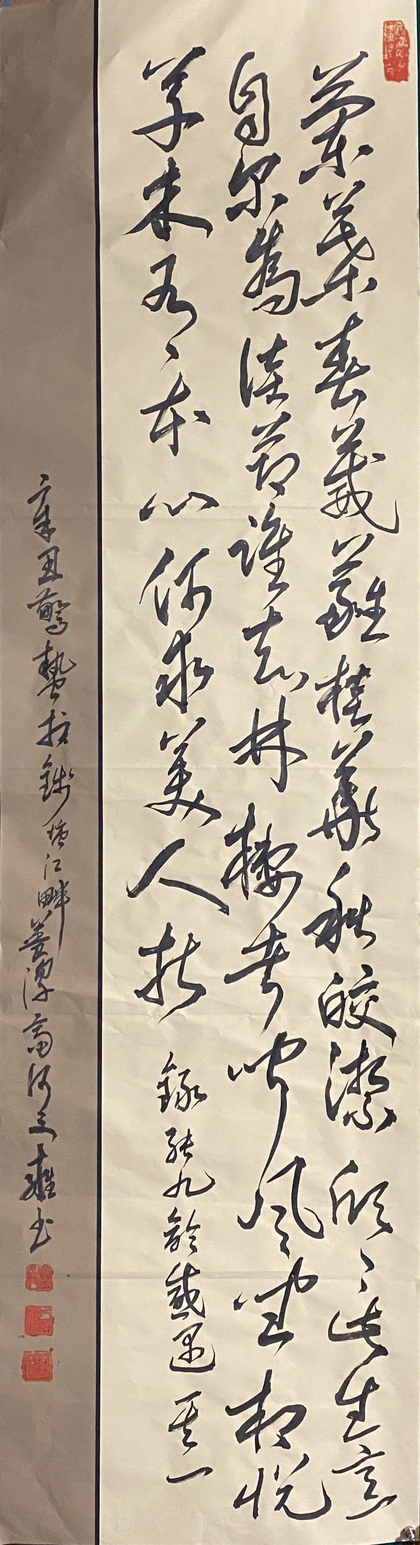 蘭葉春葳蕤桂華秋皎潔欣々此生意
自尔為佳節誰知林棲者聞風坐相悦
草木有本心何求美人折 錄張九齡感遇其一
辛丑驚蟄於錢塘江畔善齋何雄书